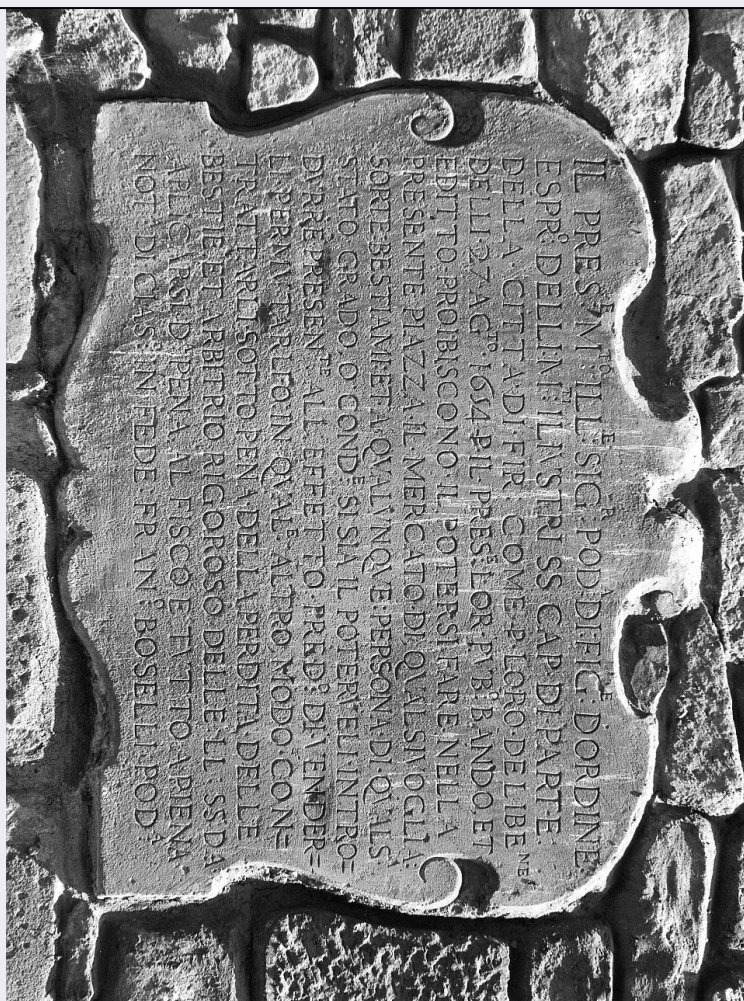 IL PRES.ᴱ M.ᵀᴼ ILL.ᴱ SIG.ᴿ POD.ᴬ DI FIG.ᴱ D ORDINE
ESPR.ᴼ DELLI M.ᵀᴵ ILLVSTRI SS CAP. DI PARTE.
DELLA CITTA DI FIR. COME P LORO DELIBE.ᴺᴱ
DELLI 27 AG.ᵀᴼ 1654 P IL PRES.ᴱ LOR PVB.ᴼ BANDO ET
EDITTO PROIBISCONO IL POTERSI FARE NELLA
PRESENTE PIAZZA IL MERCATO DI QVALSIVOGLIA
SORTE BESTIAMI ET A QVALVNQVE PERSONA DI QVALS
STATO GRADO O COND.ᴱ SI SIA IL POTERVELI INTRO=
DVRRE PRESEN.ᵀᴱ ALL EFFETTO PRED.ᴼ DI VENDER=
LI PERMVTARLI O IN QVAL.ᴱ ALTRO MODO CON=
TRATTARLI SOTTO PENA DELLA PERDITA DELLE
BESTIE ET ARBITRIO RIGOROSO DELLE LL. SS DA
APLICARSI D.ᴬ PENA AL FISCO E TVTTO A PIENA
NOT.ᴬ DI CIAS.ᴼ IN FEDE FRAN.ᴼ BOSELLI POD.ᴬ